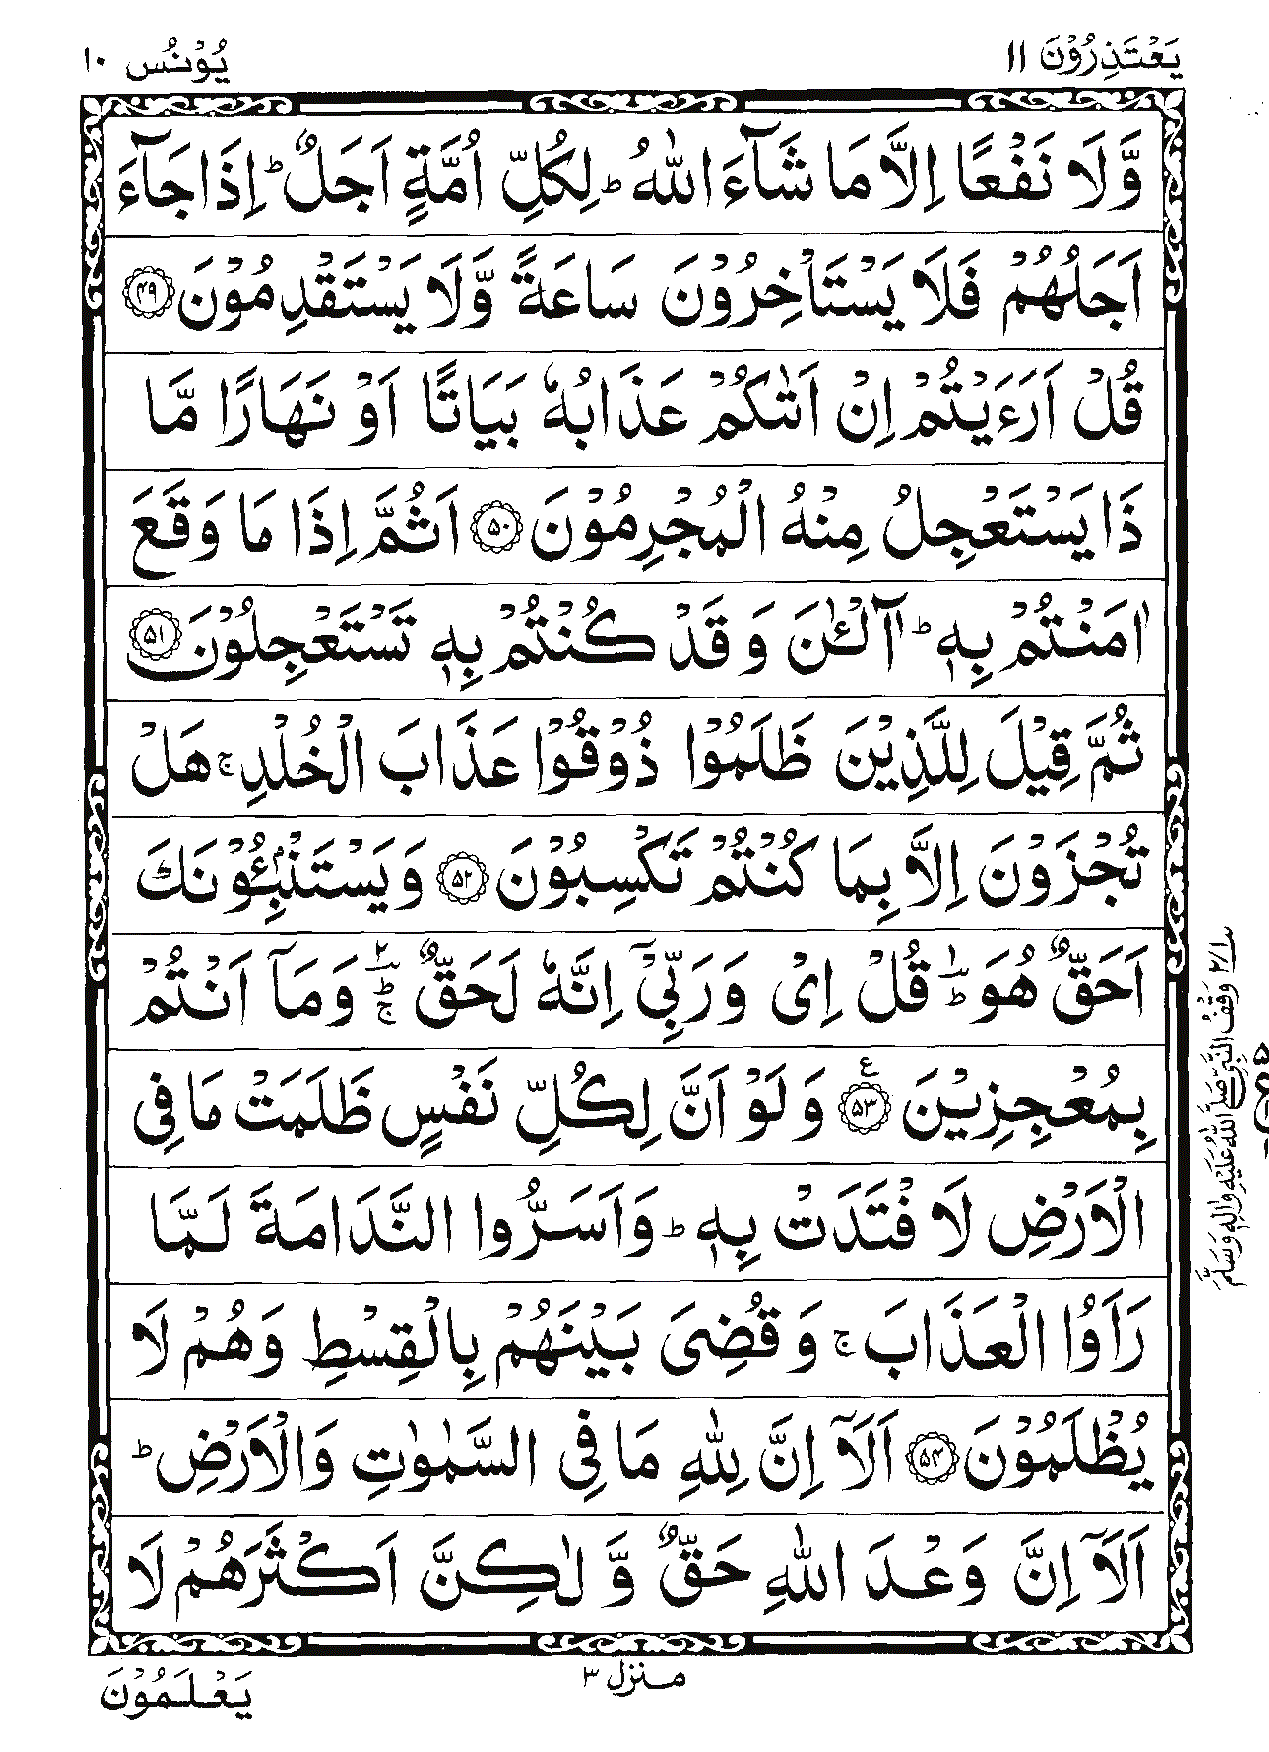 يَعْتَذِرُوْنَ ١١
يُوْنُس ١٠
وَّلَا نَفْعًا اِلَّا مَا شَآءَ اللّٰهُ ؕ لِكُلِّ اُمَّةٍ اَجَلٌ ؕ اِذَا جَآءَ
اَجَلُهُمْ فَلَا يَسْتَاْخِرُوْنَ سَاعَةً وَّلَا يَسْتَقْدِمُوْنَ ﴿۴۹﴾
قُلْ اَرَءَيْتُمْ اِنْ اَتٰىكُمْ عَذَابُهٗ بَيَاتًا اَوْ نَهَارًا مَّا
ذَا يَسْتَعْجِلُ مِنْهُ الْمُجْرِمُوْنَ ﴿۵۰﴾ اَثُمَّ اِذَا مَا وَقَعَ
اٰمَنْتُمْ بِهٖ ؕ آٰلْـٰٔنَ وَ قَدْ كُنْتُمْ بِهٖ تَسْتَعْجِلُوْنَ ﴿۵۱﴾
ثُمَّ قِيْلَ لِلَّذِيْنَ ظَلَمُوْا ذُوْقُوْا عَذَابَ الْخُلْدِ ۚ هَلْ
تُجْزَوْنَ اِلَّا بِمَا كُنْتُمْ تَكْسِبُوْنَ ﴿۵۲﴾ وَ يَسْتَنْۢبِـُٔوْنَكَ
اَحَقٌّ هُوَ ؕ قُلْ اِيْ وَ رَبِّيْۤ اِنَّهٗ لَحَقٌّ ؕۚ وَمَاۤ اَنْتُمْ
بِمُعْجِزِيْنَ ﴿۵۳﴾ ع وَ لَوْ اَنَّ لِكُلِّ نَفْسٍ ظَلَمَتْ مَا فِي
الْاَرْضِ لَا فْتَدَتْ بِهٖ ؕ وَاَسَرُّوا النَّدَامَةَ لَمَّا
رَاَوُا الْعَذَابَ ۚ وَ قُضِىَ بَيْنَهُمْ بِالْقِسْطِ وَهُمْ لَا
يُظْلَمُوْنَ ﴿۵۴﴾ اَلَاۤ اِنَّ لِلّٰهِ مَا فِي السَّمٰوٰتِ وَالْاَرْضِ ؕ
اَلَاۤ اِنَّ وَعْدَ اللّٰهِ حَقٌّ وَّ لٰكِنَّ اَكْثَرَهُمْ لَا
وَقْفُ النَّبِيِّ صَلَّى اللّٰهُ عَلَيْهِ وَاٰلِهٖ وَسَلَّمَ
منزل ٣
يَعْلَمُوْنَ